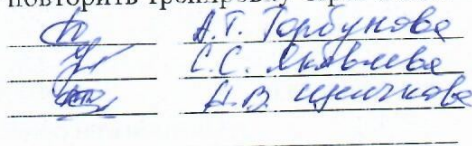 повторить тренировку
А.Т. Горбунова
С.С. Яковлева
А.В. Щелчкова